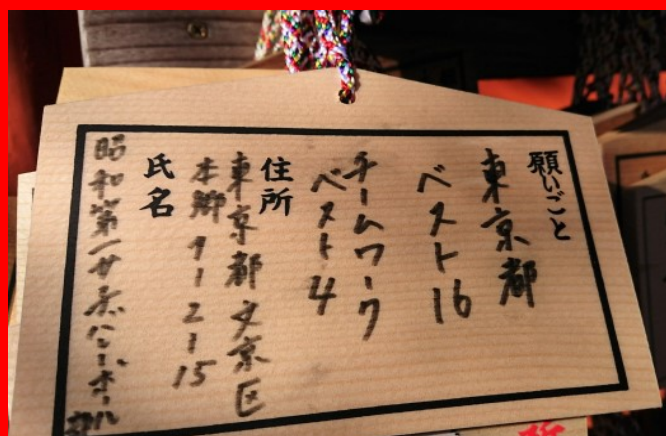 願いごと
東京都
ベスト16
チームワーク
ベスト4
住所
東京都文京区
本郷1-2-15
氏名
昭和第一女子バレーボール部